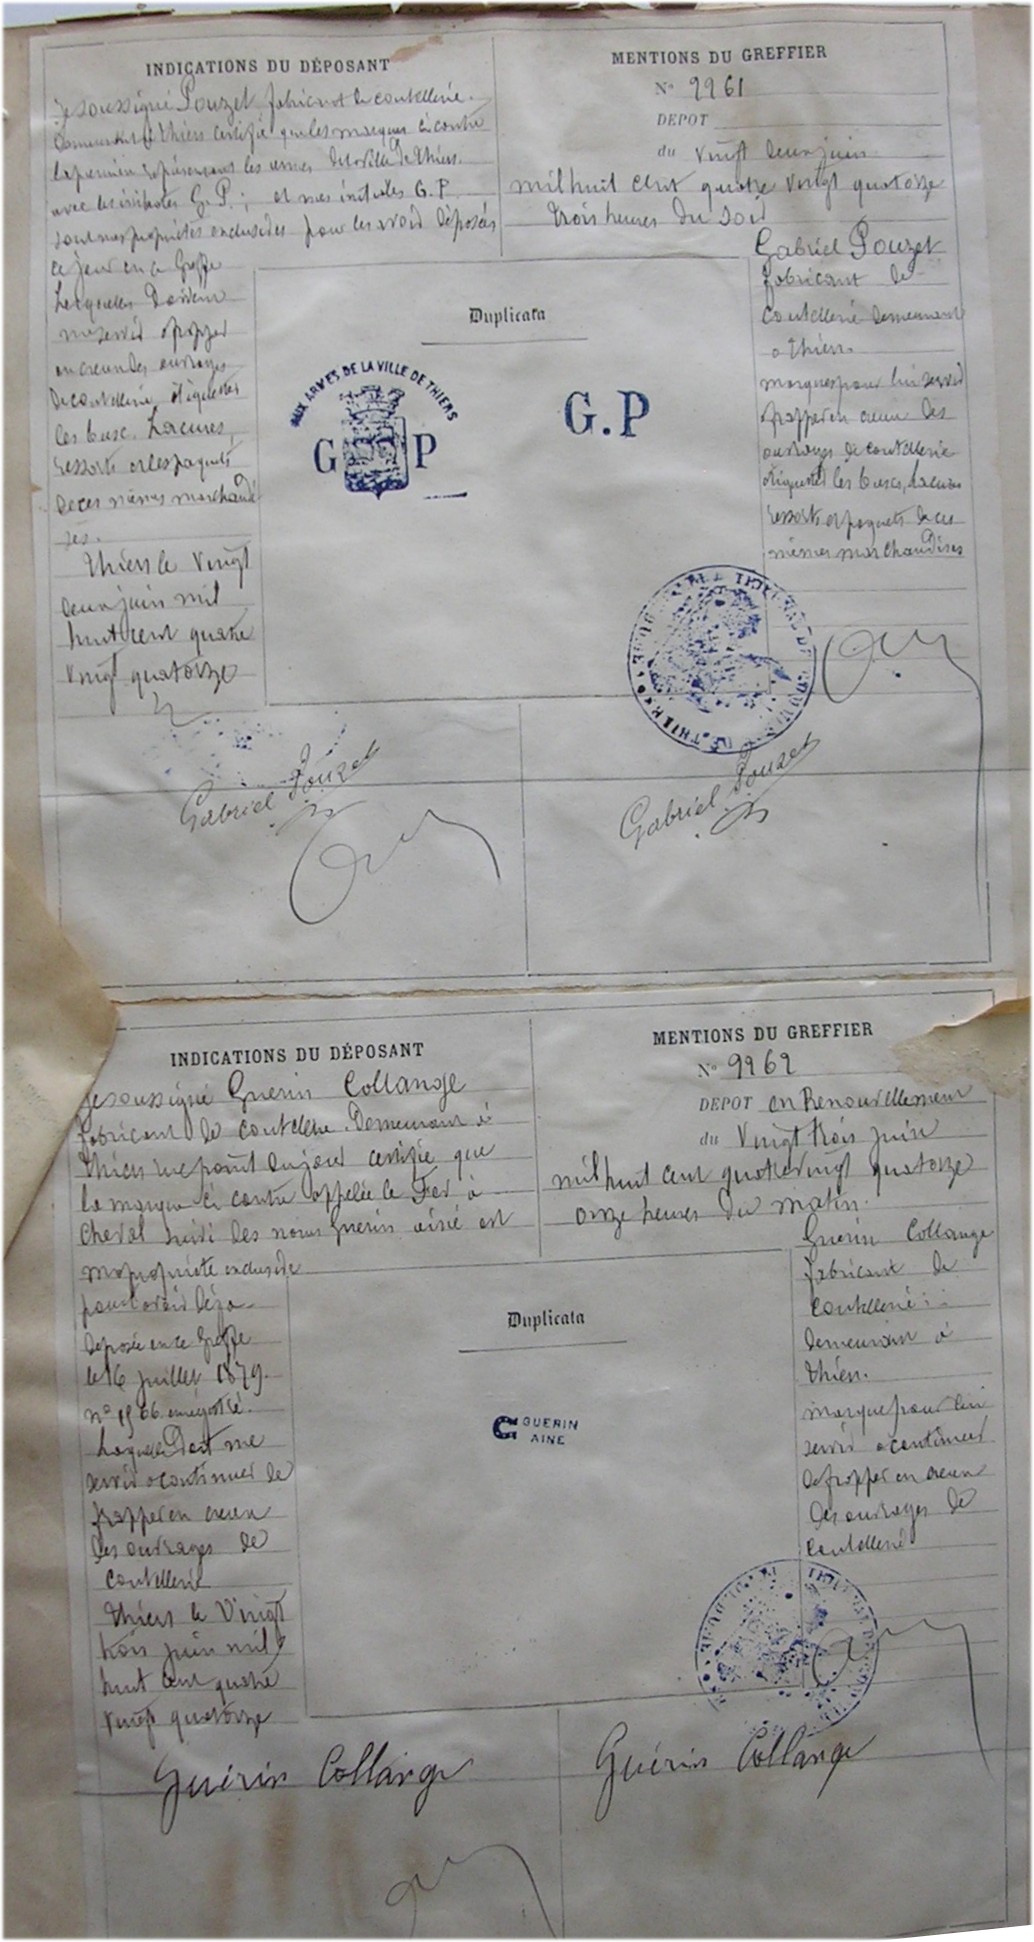 INDICATIONS DU DÉPOSANT
Je soussigné Pouzet fabricant de coutellerie
Demeurant à Thiers certifie que les marques ci contre
la première représentant les armes de la ville de Thiers
avec les initiales G. P.; et mes initiales G. P.
sont mes propriétés exclusives pour les avoir déposées
ce jour en ce Greffe
Lesquelles doivent
me servir à frapper
en creux des ouvrages
de coutellerie, étiqueter
les busc, Lacures,
ressorts et les paquets
de ces mêmes marchandi
ses.
Thiers le vingt
deux juin mil
huit cent quatre
vingt quatorze
MENTIONS DU GREFFIER
No 2261
DEPOT
du vingt deux juin
mil huit cent quatre vingt quatorze
trois heures du soir
Gabriel Pouzet
fabricant de
coutellerie demeurant
a Thiers.
marques pour lui servir
a frapper en creux des
ouvrages de coutellerie
étiqueter les buscs, Lacures
ressorts et paquets de ces
mêmes marchandises
Duplicata
AUX ARMES DE LA VILLE DE THIERS
G P
G.P
Gabriel Pouzet
Gabriel Pouzet
INDICATIONS DU DÉPOSANT
Je soussigné Guerin Collange
fabricant de coutellerie Demeurant à
Thiers rue point du jour certifie que
la marque ci contre appelée le Fer à
Cheval suivi des noms Guerin ainé est
ma propriété exclusive
pour l'avoir déja
déposée en ce Greffe
le 16 juillet 1879.
no
Laquelle doit me
servir a continuer de
frapper en creux
des ouvrages de
coutellerie
Thiers le Vingt
trois juin mil
huit cent quatre
vingt quatorze
MENTIONS DU GREFFIER
No 2262
DEPOT en Renouvellement
du Vingt trois juin
mil huit cent quatre vingt quatorze
onze heures du matin.
Guerin Collange
fabricant de
coutellerie
demeurant à
Thiers.
marque pour lui
servir a continuer
de frapper en creux
des ouvrages de
coutellerie
Duplicata
G GUERIN
AINE
Guérin Collange
Guérin Collange